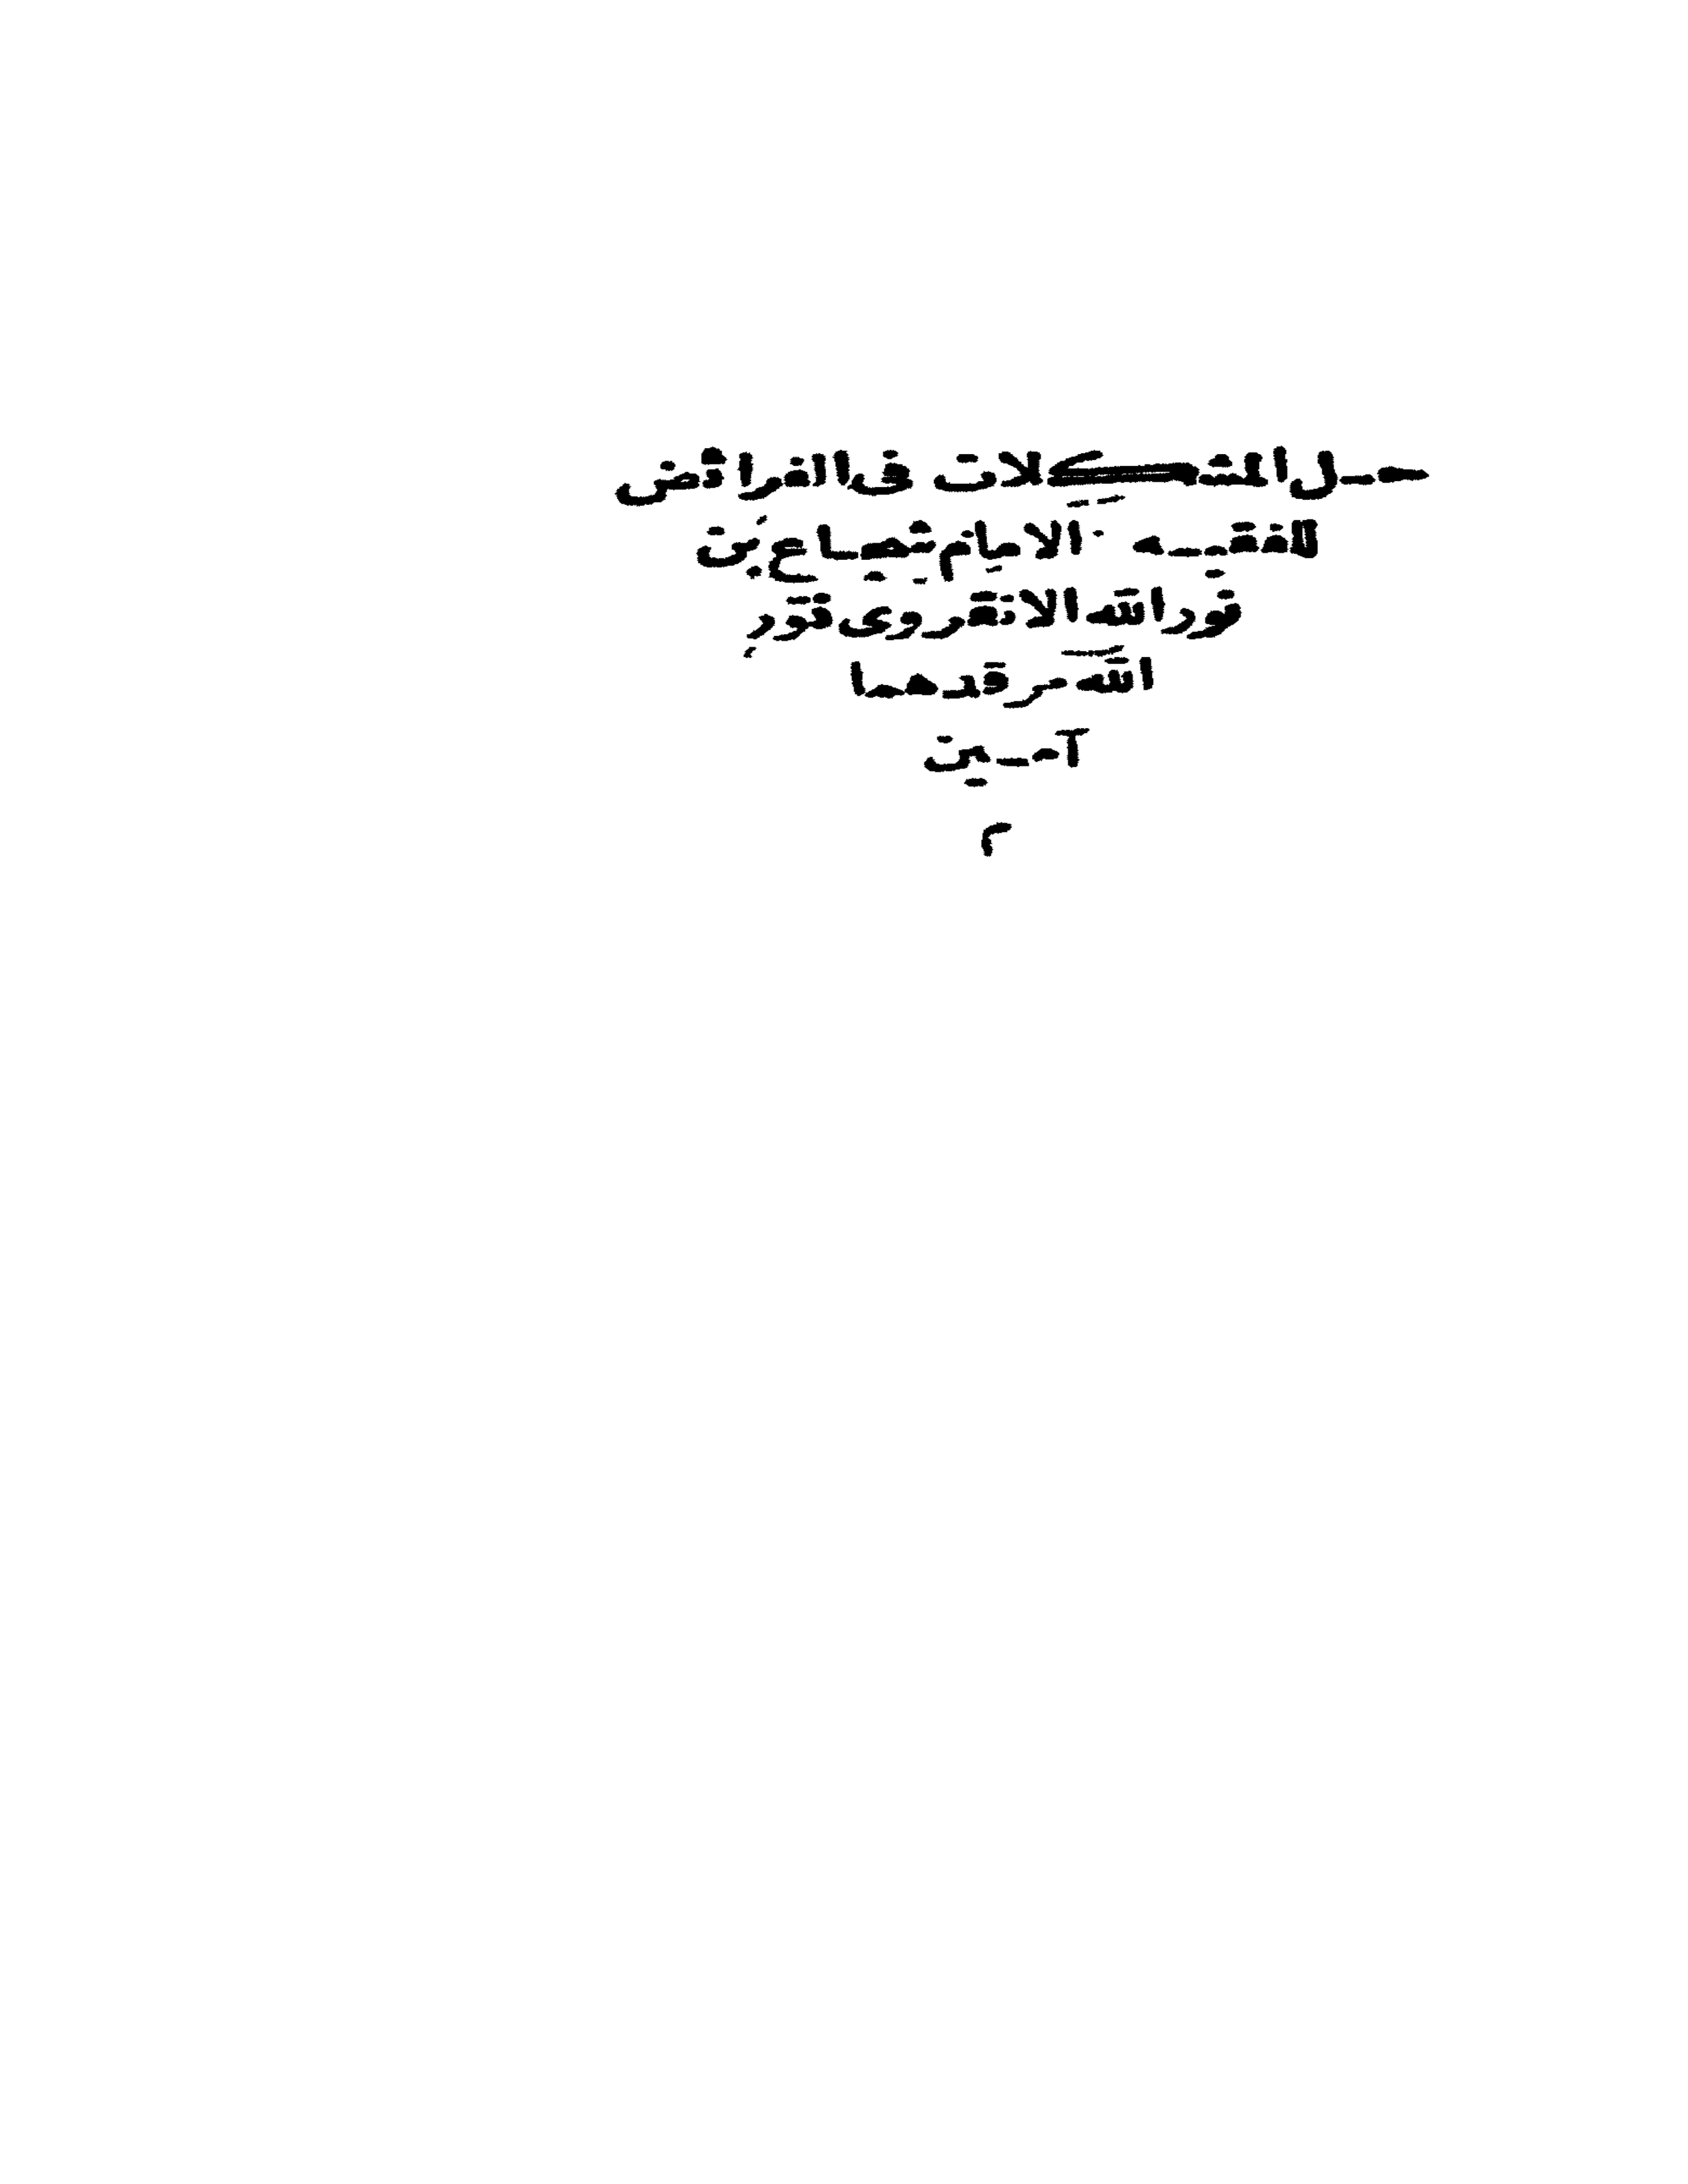 حل المشكلات فى الفرائض
للفقيه الامام شجاع بن
نور الله الانقروى نور
الله مرقدهما
آمين
م